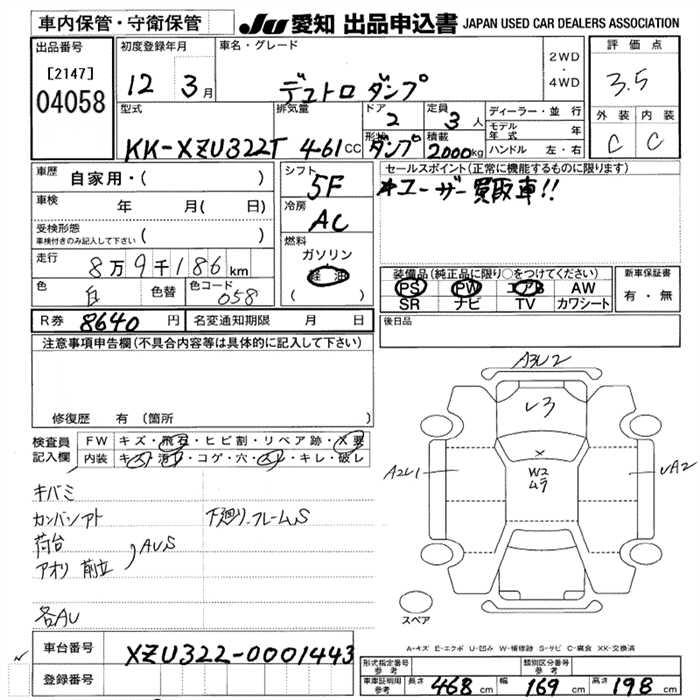 車内保管・守衛保管
JU 愛知 出品申込書 JAPAN USED CAR DEALERS ASSOCIATION
出品番号
[2147]
04058
初度登録年月
12 3月
車名・グレード
デュトロ ダンプ
2WD
・
4WD
評価点
3.5
外装 内装
C C
型式
KK-XZU322T
排気量
4.61 CC
ドア
2
定員
3人
形状
ダンプ
積載
2000kg
ディーラー・並行
モデル年式 年
ハンドル 左・右
車歴
自家用・( )
車検
年 月( 日)
受検形態
車検付きのみ記入して下さい ( )
走行
8万9千186km
色
白
色替
色コード
058
シフト
5F
冷房
AC
燃料
ガソリン
軽油
( )
セールスポイント(正常に機能するものに限ります)
*ユーザー買取車!!
装備品(純正品に限り○をつけてください)
PS PW エアB AW
SR ナビ TV カワシート
新車保証書
有・無
R券 8640 円
名変通知期限 月 日
後日品
注意事項申告欄(不具合内容等は具体的に記入して下さい)
修復歴 有(箇所 )
検査員記入欄
FW キズ・飛石・ヒビ割・リペア跡・X要
内装 キズ・汚れ・コゲ・穴・スレ・キレ・破レ
キバミ
カンバンアト
荷台
アオリ 前立
AUS
下廻り.フレームS
各AU
A3U2
レ3
X
W2
ムラ
A2U1
UA2
スペア
A-キズ E-エクボ U-凹み W-補修跡 S-サビ C-腐食 XX-交換済
車台番号
XZU322-0001443
登録番号
形式指定番号
参考
類別区分番号
参考
車庫証明用
参考
長さ 468 cm
幅 169 cm
高さ 198 cm